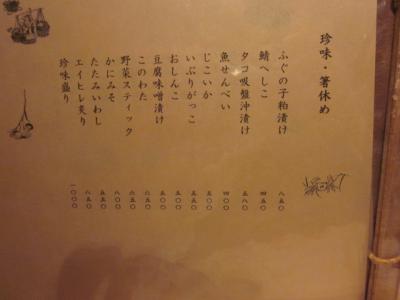 珍味・箸休め
ふぐの子粕漬け 八五〇
鯖へしこ 四五〇
タコ吸盤沖漬け 五八〇
魚せんべい 四〇〇
じこいか 五〇〇
いぶりがっこ 五五〇
おしんこ 五〇〇
豆腐味噌漬け 五五〇
このわた 六五〇
野菜スティック 六五〇
かにみそ 八〇〇
たたみいわし 五五〇
エイヒレ炙り 八五〇
珍味盛り 一〇〇〇